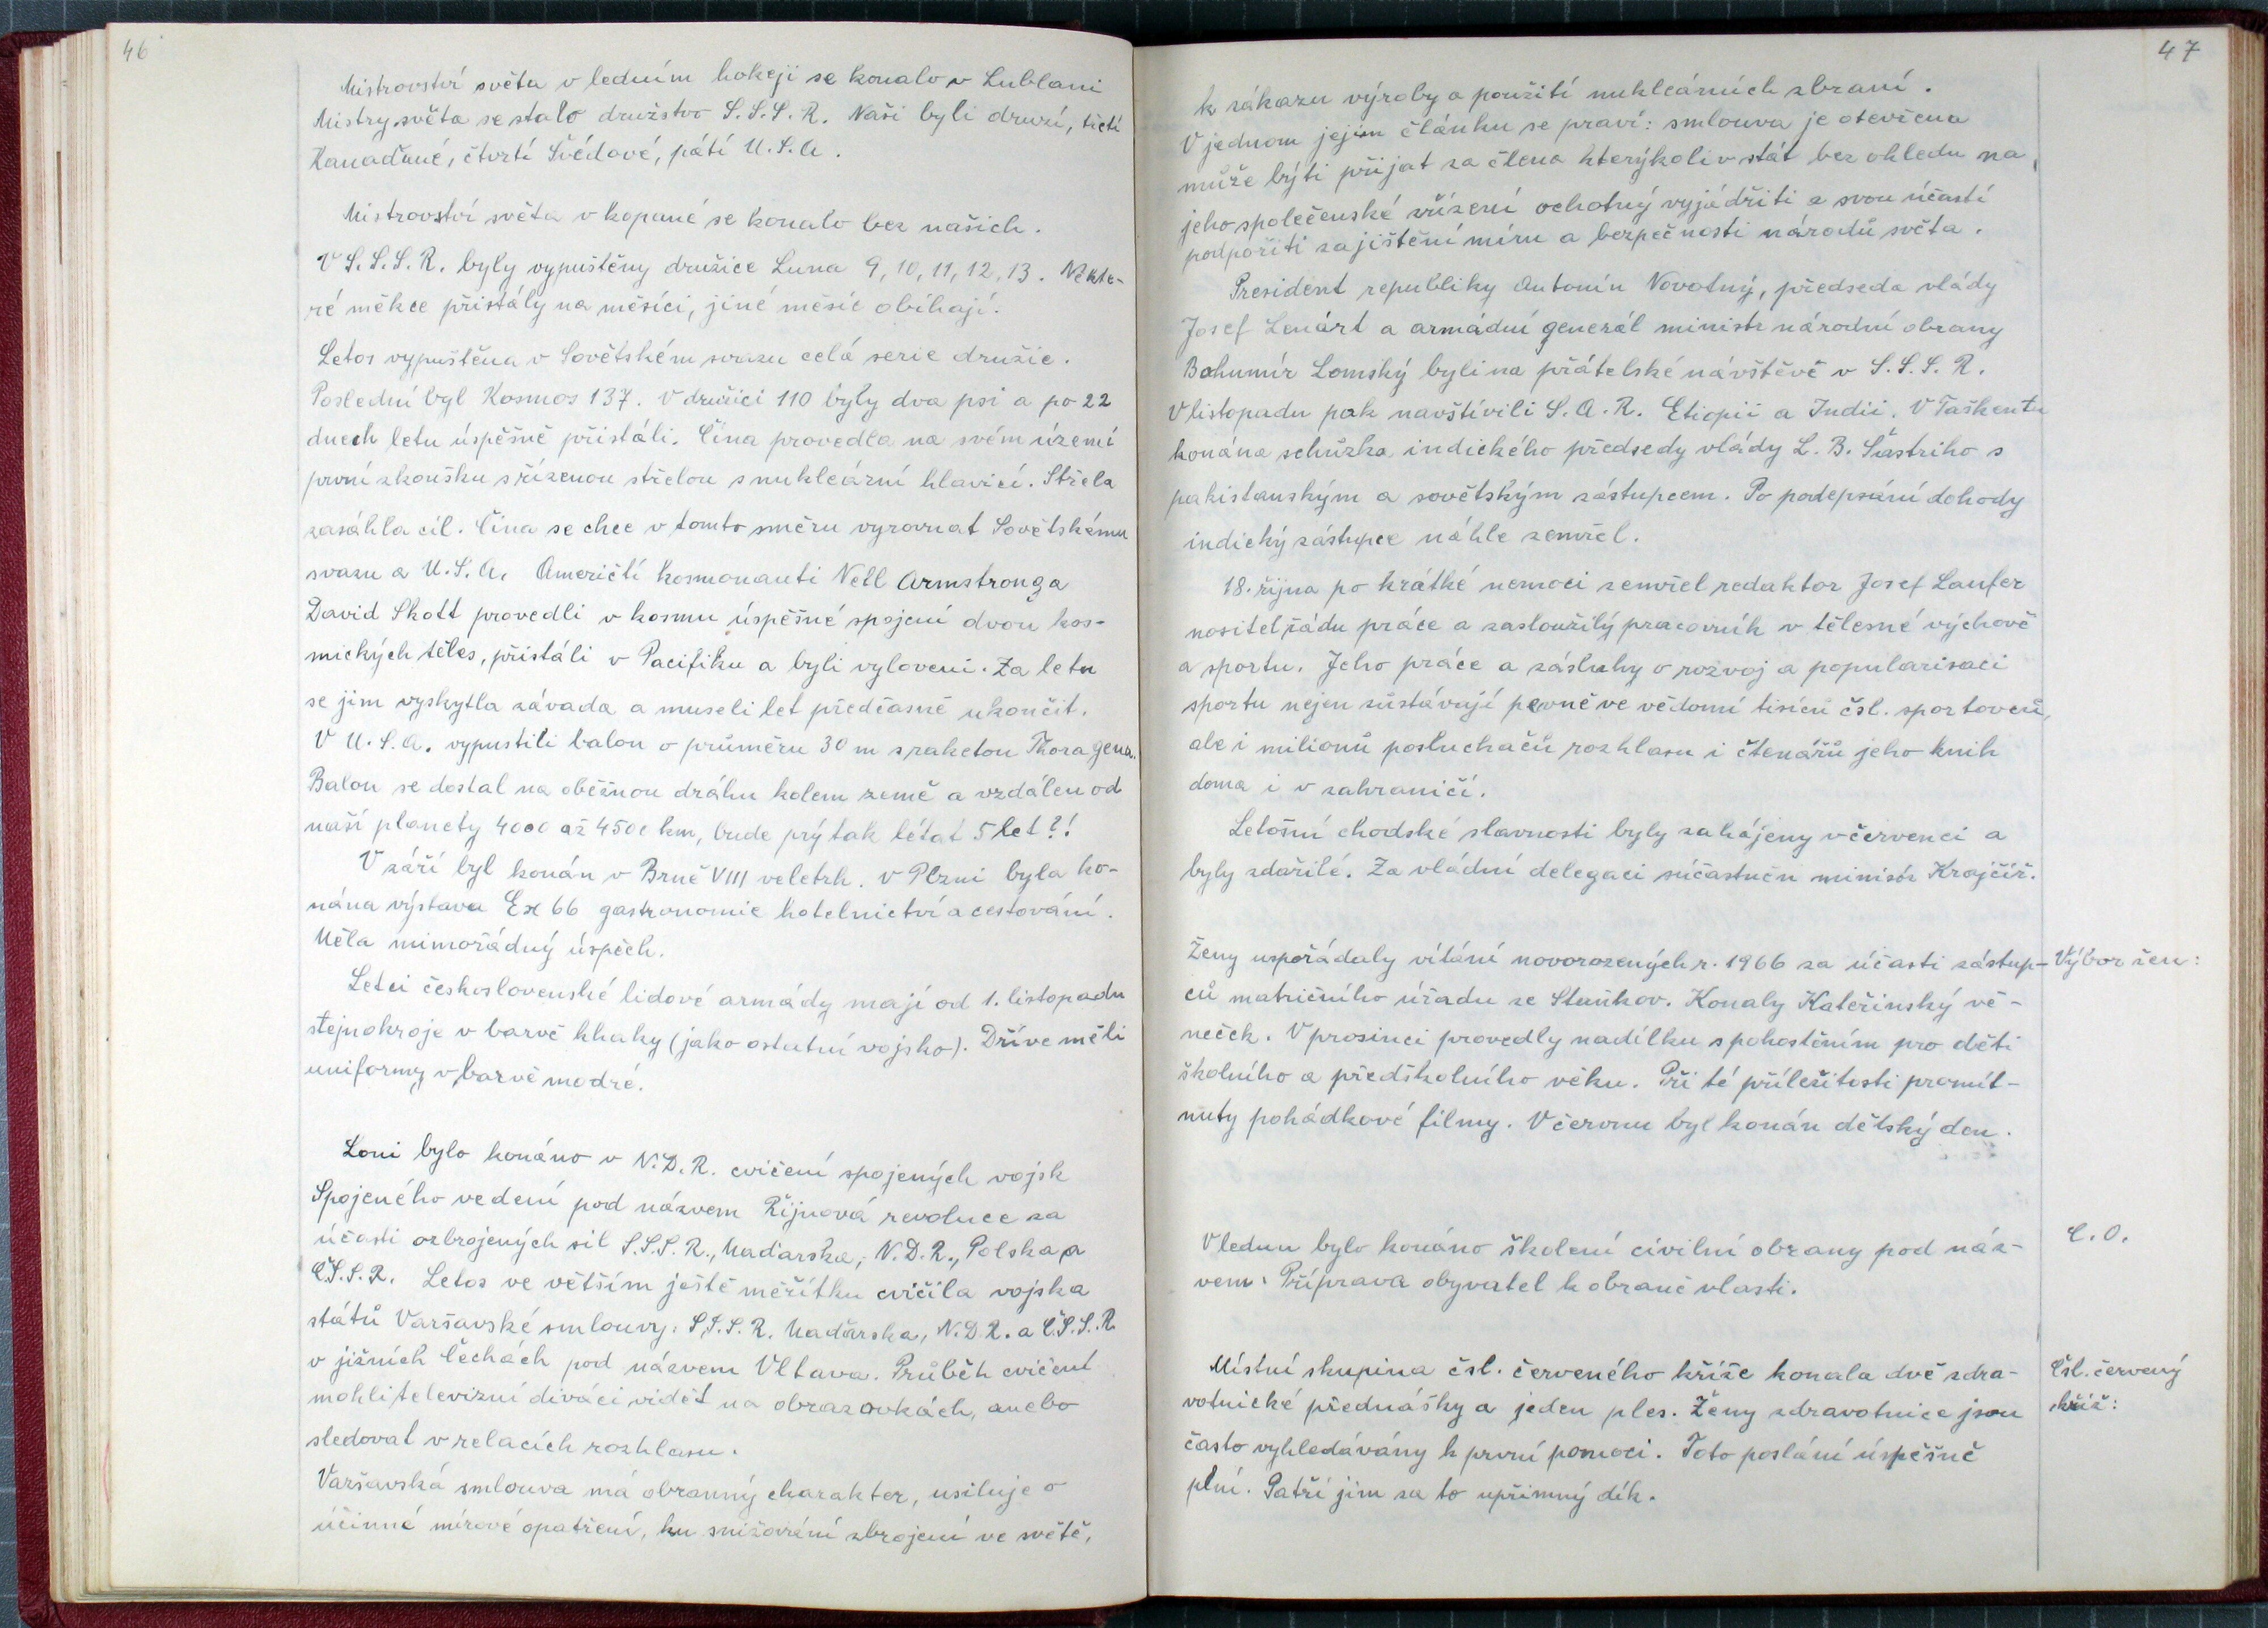 46
Mistrovství světa v ledním hokeji se konalo v Lublani
Mistry světa se stalo družstvo S.S.S.R. Naši byli druzí, třetí
Kanaďané, čtvrtí Švédové, pátí U.S.A.
Mistrovství světa v kopané se konalo bez našich.
V S.S.S.R. byly vypuštěny družice Luna 9, 10, 11, 12, 13. Někte-
ré měkce přistály na měsíci, jiné měsíc obíhají.
Letos vypuštěna v Sovětském svazu celá serie družic.
Poslední byl Kosmos 137. V družici 110 byly dva psi a po 22
dnech letu úspěšně přistáli. Čína provedla na svém území
první zkoušku s řízenou střelou s nukleární hlavicí. Střela
zasáhla cíl. Čína se chce v tomto směru vyrovnat Sovětskému
svazu a U.S.A. Američtí kosmonauti Neil Armstrong a
David Skott provedli v kosmu úspěšné spojení dvou kos-
mických těles, přistáli v Pacifiku a byli vyloveni. Za letu
se jim vyskytla závada a museli let předčasně ukončit.
V U.S.A. vypustili balon o průměru 30 m s raketou Thoragena.
Balon se dostal na oběžnou dráhu kolem země a vzdálen od
naší planety 4000 až 4500 km, bude prý tak létat 5 let?!
V září byl konán v Brně VIII veletrh. v Plzni byla ko-
nána výstava Ex 66 gastronomie hotelnictví a cestování.
Měla mimořádný úspěch.
Letci československé lidové armády mají od 1. listopadu
stejnokroje v barvě khaky (jako ostatní vojsko). Dříve měli
uniformy v barvě modré.
Loni bylo konáno v N.D.R. cvičení spojených vojsk
Spojeného vedení pod názvem Říjnová revoluce za
účasti ozbrojených sil S.S.S.R., Maďarska, N.D.R., Polska a
Č.S.S.R. Letos ve větším ještě měřítku cvičila vojska
států Varšavské smlouvy: S.S.S.R. Maďarska, N.D.R. a Č.S.S.R.
v jižních Čechách pod názvem Vltava. Průběh cvičení
mohli televizní diváci vidět na obrazovkách, anebo
sledovat v relacích rozhlasu.
Varšavská smlouva má obranný charakter, usiluje o
účinné mírové opatření, ku snižování zbrojení ve světě,
47
k zákazu výroby a použití nukleárních zbraní.
V jednom jejím článku se praví: smlouva je otevřena
může býti přijat za člena kterýkoliv stát bez ohledu na
jeho společenské zřízení ochotný vyjádřiti a svou účastí
podpořiti zajištění míru a bezpečnosti národů světa.
President republiky Antonín Novotný, předseda vlády
Josef Lenárt a armádní generál ministr národní obrany
Bohumír Lomský byli na přátelské návštěvě v S.S.S.R.
V listopadu pak navštívili S.A.R. Etiopii a Indii. V Taškentu
konána schůzka indického předsedy vlády L. B. Šastriho s
pakistanským a sovětským zástupcem. Po podepsání dohody
indický zástupce náhle zemřel.
18. října po krátké nemoci zemřel redaktor Josef Laufer
nositel řádu práce a zasloužilý pracovník v tělesné výchově
a sportu. Jeho práce a zásluhy o rozvoj a popularisaci
sportu nejen zůstávají pevně ve vědomí tisíců čsl. sportovců,
ale i milionů posluchačů rozhlasu i čtenářů jeho knih
doma i v zahraničí.
Letošní chodské slavnosti byly zahájeny v červenci a
byly zdařilé. Za vládní delegaci súčastněn ministr Krajčíř.
Výbor žen:
Ženy uspořádaly vítání novorozených r. 1966 za účasti zástup-
ců matričního úřadu ze Staňkov. Konaly Kateřinský vě-
neček. V prosinci provedly nadílku s pohoštěním pro děti
školního a předškolního věku. Při té příležitosti promít-
nuty pohádkové filmy. V červnu byl konán dětský den.
C.O.
V lednu bylo konáno školení civilní obrany pod náz-
vem: Příprava obyvatel k obraně vlasti.
Čsl. červený
kříž:
Místní skupina čsl. červeného kříže konala dvě zdra-
votnické přednášky a jeden ples. Ženy zdravotnice jsou
často vyhledávány k první pomoci. Toto poslání úspěšně
plní. Patří jim za to upřímný dík.